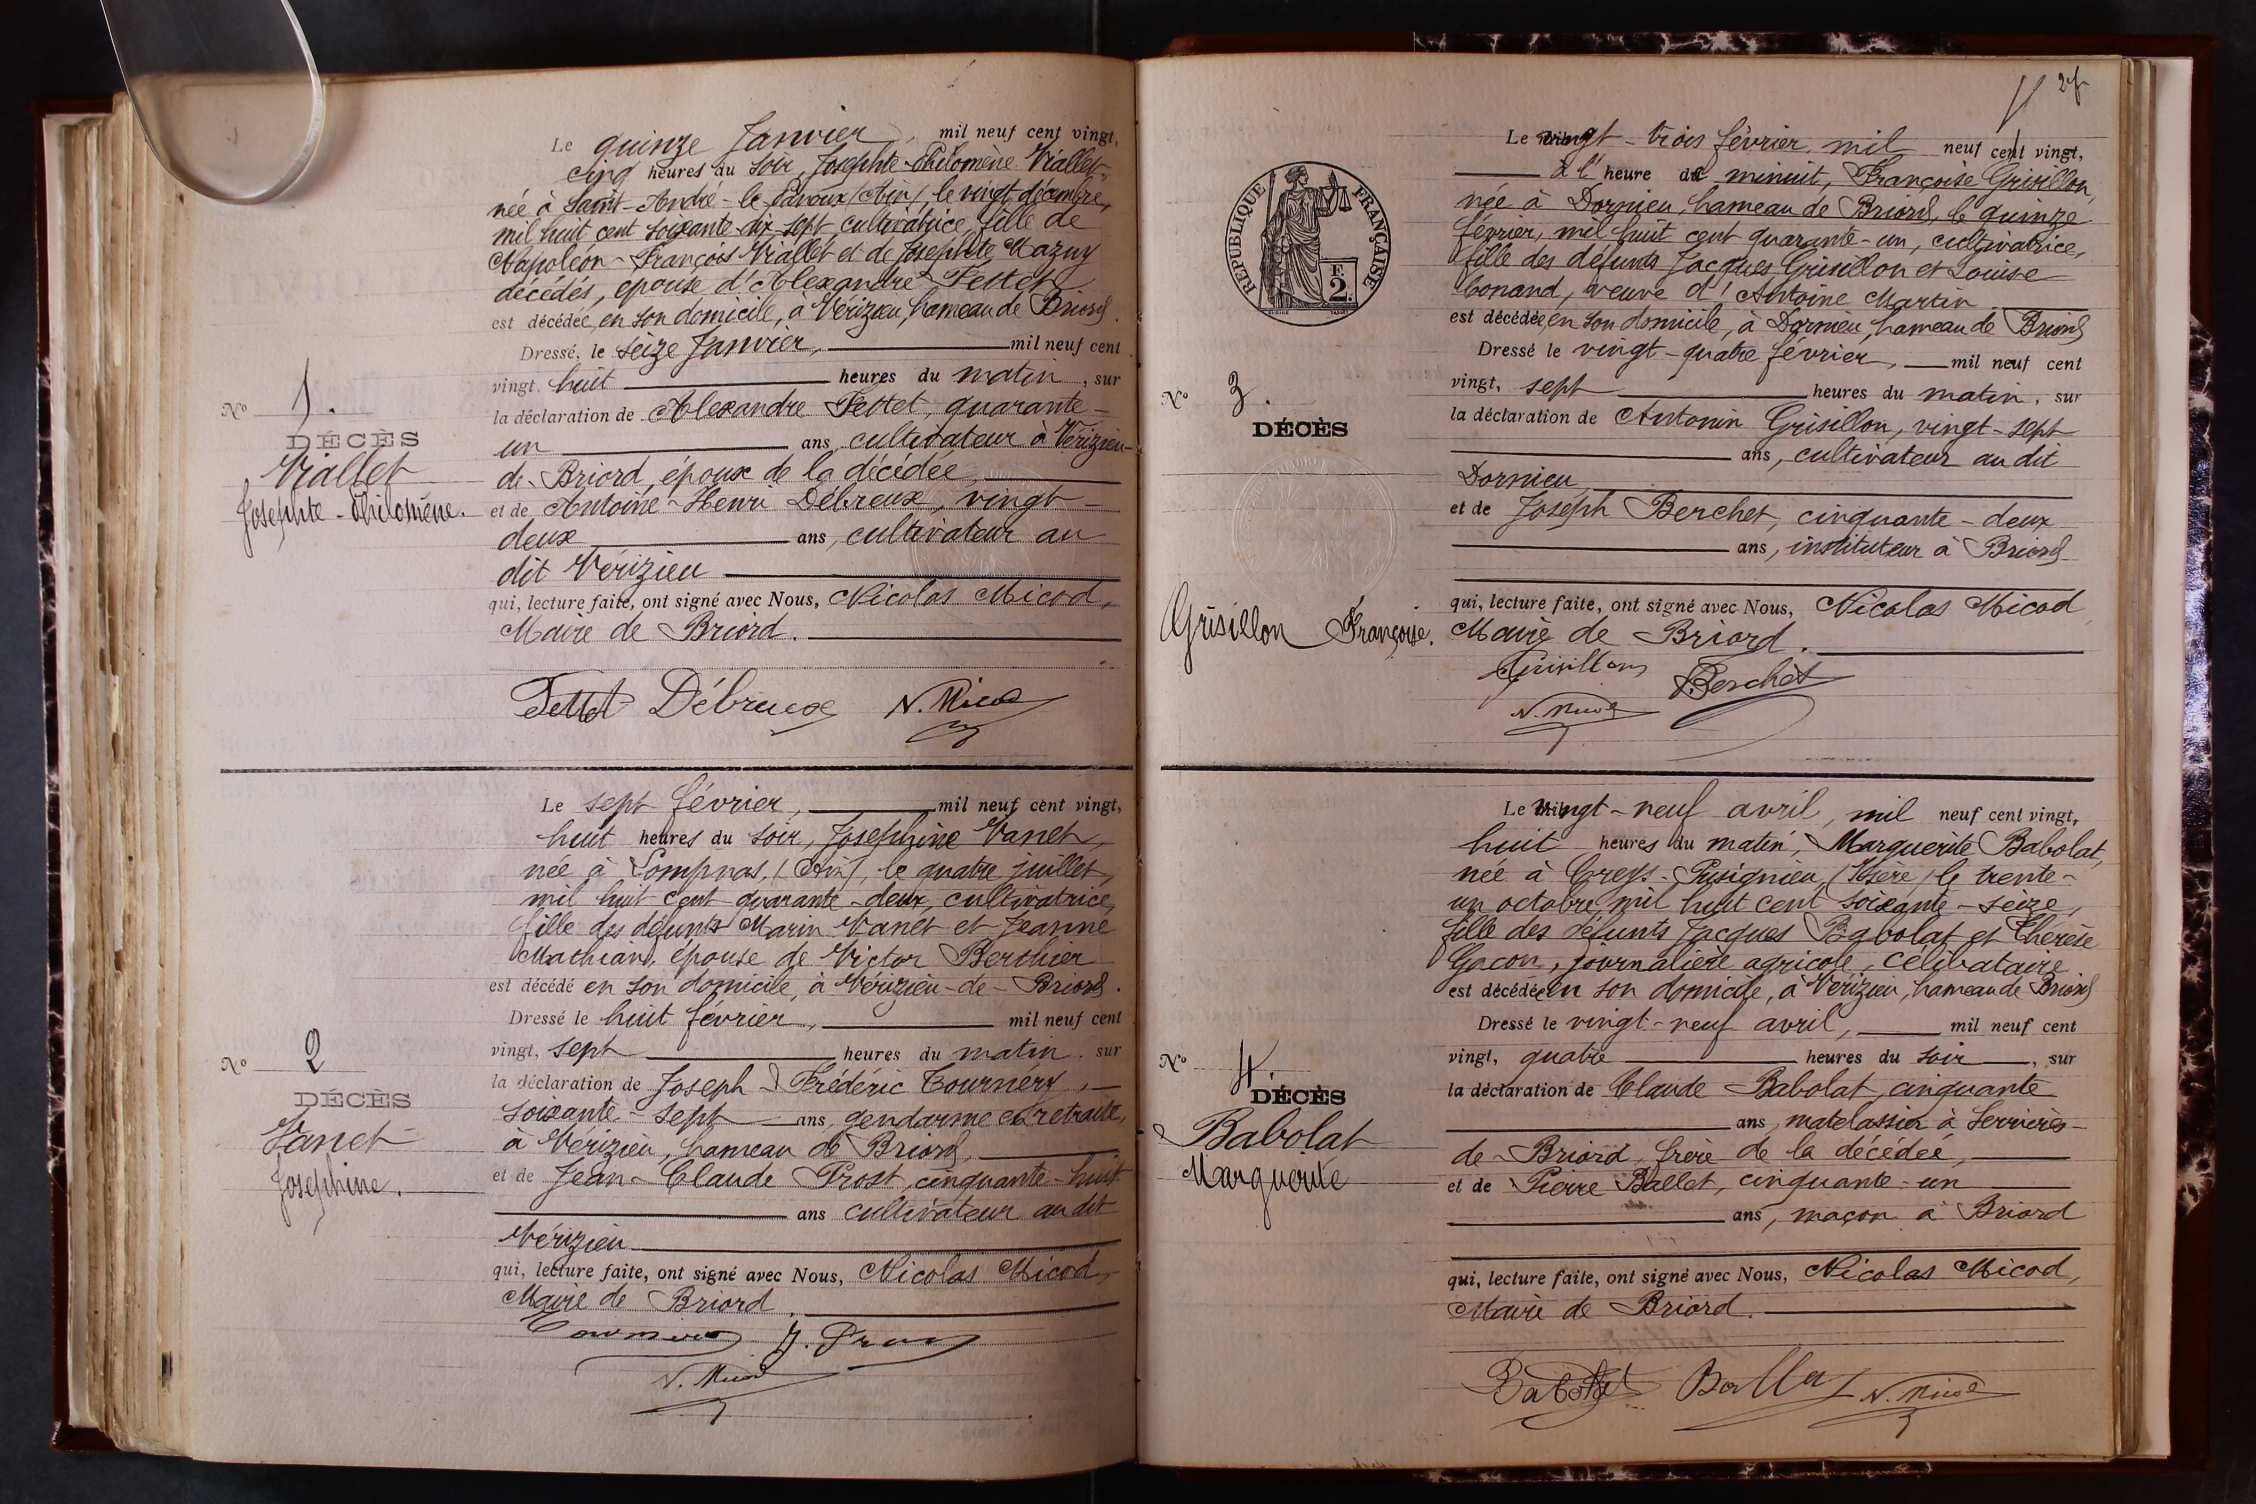 Le quinze Janvier, mil neuf cent vingt,
cinq heures du soir, Josephte-Philomène Viallet
née à Saint-André-le- (Ain), le vingt décembre,
mil huit cent soixante dix sept cultivatrice fille de
Napoléon-François Viallet et de Josephte Mazuy
décédés, épouse d'Alexandre Fettet
est décédée en son domicile, à Vérizieu, hameau de Briord.
Dressé, le seize Janvier, mil neuf cent
vingt, huit heures du matin, sur
la déclaration de Alexandre Fettet, quarante-
un ans, cultivateur à Vérizieu-
de-Briord, époux de la décédée,
et de Antoine-Henri Débreux, vingt-
deux ans, cultivateur au
dit Vérizieu
qui, lecture faite, ont signé avec Nous, Nicolas Micod,
Maire de Briord.
Fettet Débreux N. Micod
No 1.
DÉCÈS
Viallet
Josephte-Philomène.
Le sept février, mil neuf cent vingt,
huit heures du soir, Josephine Vanet,
née à Lompnas, (Ain), le quatre juillet,
mil huit cent quarante-deux, cultivatrice,
fille des défunts Marin Vanet et Jeanne
Mathian, épouse de Victor Berthier
est décédé en son domicile, à Vérizieu-de-Briord.
Dressé le huit février, mil neuf cent
vingt, sept heures du matin, sur
la déclaration de Joseph Frédéric Tournéry,
soixante-sept ans, gendarme en retraite,
à Vérizieu, hameau de Briord,
et de Jean-Claude Prost, cinquante-huit
ans cultivateur au dit
Vérizieu
qui, lecture faite, ont signé avec Nous, Nicolas Micod,
Maire de Briord.
J. Prost
N. Micod
No 2
DÉCÈS
Vanet
Josephine.
2 f
RÉPUBLIQUE FRANÇAISE
2F.
Le vingt-trois février, mil neuf cent vingt,
à l' heure de minuit, Françoise Grisillon,
née à Dornieu, hameau de Briord, le quinze
février, mil huit cent quarante-un, cultivatrice,
fille des défunts Jacques Grisillon et Louise
Conand, veuve d'Antoine Martin
est décédée, en son domicile, à Dornieu, hameau de Briord
Dressé le vingt-quatre février, mil neuf cent
vingt, sept heures du matin, sur
la déclaration de Antonin Grisillon, vingt-sept
ans, cultivateur au dit
Dornieu
et de Joseph Berchet, cinquante-deux
ans, instituteur à Briord
qui, lecture faite, ont signé avec Nous, Nicolas Micod
Maire de Briord.
Grisillon Berchet
N. Micod
No 3.
DÉCÈS
Grisillon Françoise.
Le vingt-neuf avril, mil neuf cent vingt,
huit heures du matin, Marguerite Babolat,
née à Creys-Pusignieu, (Isère) le trente-
un octobre, mil huit cent soixante-seize,
fille des défunts Jacques Babolat et Thérèse
Gacon, journalière agricole, célibataire
est décédée en son domicile, à Vérizieu, hameau de Briord
Dressé le vingt-neuf avril, mil neuf cent
vingt, quatre heures du soir, sur
la déclaration de Claude Babolat, cinquante
ans, matelassier à Serrières-
de-Briord, frère de la décédée,
et de Pierre Ballet, cinquante-un
ans, maçon à Briord
qui, lecture faite, ont signé avec Nous, Nicolas Micod,
Maire de Briord.
Babolat Ballet N. Micod
No 4.
DÉCÈS
Babolat
Marguerite